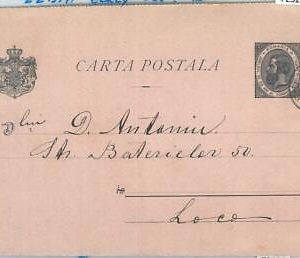 CARTA POSTALA
Dlui
D. Antoniu
Str. Baterielor 50.
la
Loco